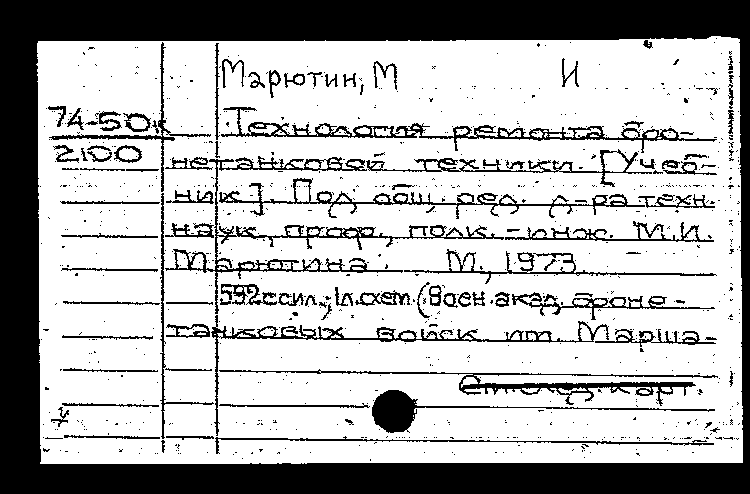 Марютин, М И
74-50к Технология ремонта бро-
2100 нетанковой техники. [Учеб-
ник]. Под общ. ред. д-ра техн.
наук, проф., полк.-инж. М.И.
Марютина. М., 1973.
592с сил.; 1л.схем. (Воен. акад. броне-
танковых войск им. Марша-
См. след. карт.